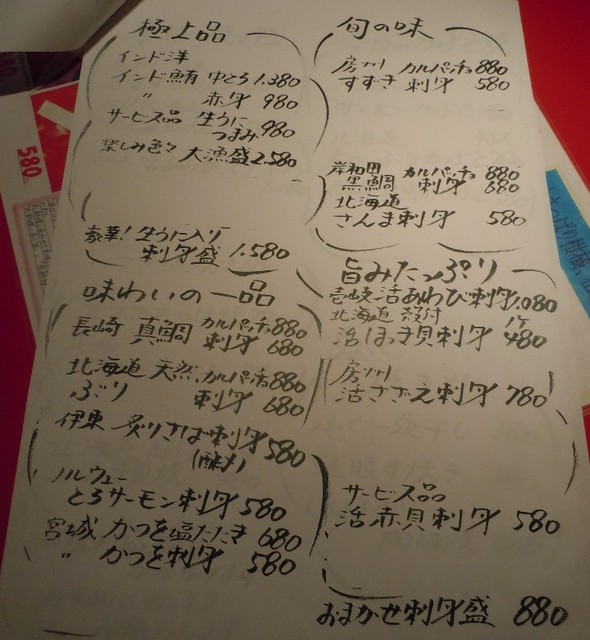 極上品
インド洋
インド鮪 中とろ 1.380
〃 赤身 980
サービス品 生うに
つまみ 980
楽しみ色々 大漁盛 2.580
豪華! 生うに入り
刺身盛 1.580
味わいの一品
長崎 真鯛 カルパッチョ 880
刺身 680
北海道 天然 カルパッチョ 880
ぶり 刺身 680
伊東 炙りさば刺身 580
(酢〆)
ノルウェー
とろサーモン刺身 580
宮城 かつを塩たたき 680
〃 かつを刺身 580
旬の味
房州 カルパッチョ 880
すずき 刺身 580
岸和田 カルパッチョ 880
黒鯛 刺身 680
北海道
さんま刺身 580
旨みたっぷり
壱岐活あわび刺身 1.080
北海道 殻付 1ケ
活ほっき貝刺身 480
房州
活さざえ刺身 780
サービス品
活赤貝刺身 580
おまかせ刺身盛 880
580